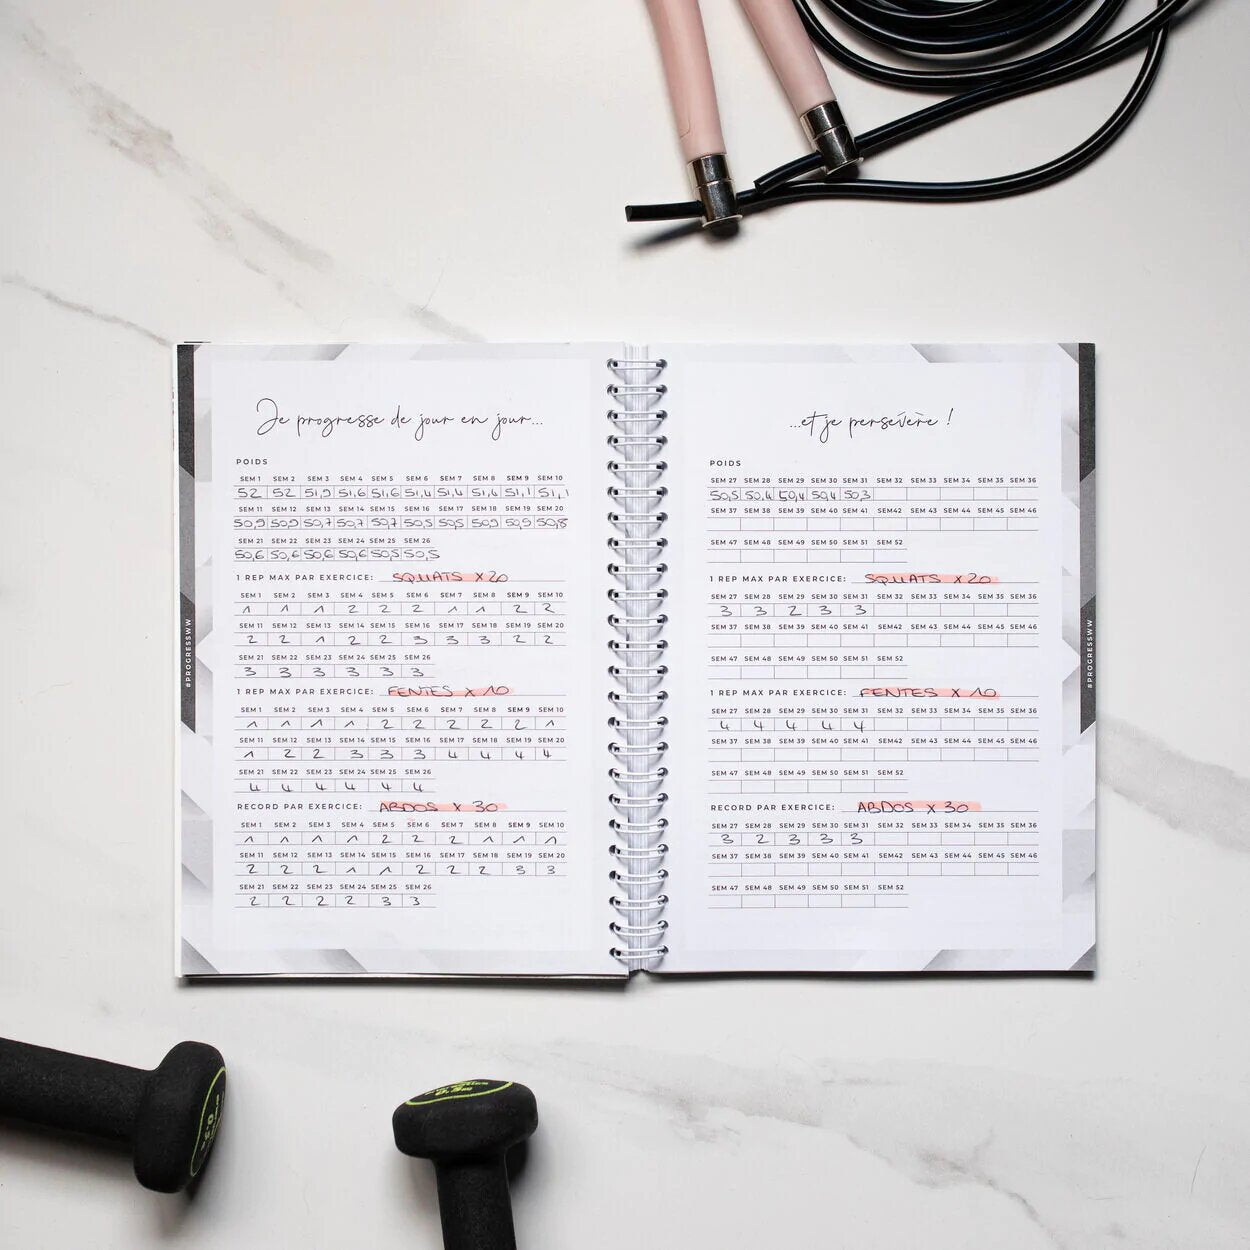 Je progresse de jour en jour...
POIDS
SEM 1 SEM 2 SEM 3 SEM 4 SEM 5 SEM 6 SEM 7 SEM 8 SEM 9 SEM 10
52 52 51,9 51,6 51,6 51,4 51,4 51,4 51,1 51,1
SEM 11 SEM 12 SEM 13 SEM 14 SEM 15 SEM 16 SEM 17 SEM 18 SEM 19 SEM 20
50,9 50,9 50,7 50,7 50,7 50,5 50,5 50,9 50,9 50,8
SEM 21 SEM 22 SEM 23 SEM 24 SEM 25 SEM 26
50,6 50,6 50,6 50,6 50,5 50,5
1 REP MAX PAR EXERCICE: SQUATS X 20
SEM 1 SEM 2 SEM 3 SEM 4 SEM 5 SEM 6 SEM 7 SEM 8 SEM 9 SEM 10
1 1 1 2 2 2 1 1 2 2
SEM 11 SEM 12 SEM 13 SEM 14 SEM 15 SEM 16 SEM 17 SEM 18 SEM 19 SEM 20
2 2 1 2 2 3 3 3 2 2
SEM 21 SEM 22 SEM 23 SEM 24 SEM 25 SEM 26
3 3 3 3 3 3
1 REP MAX PAR EXERCICE: FENTES X 10
SEM 1 SEM 2 SEM 3 SEM 4 SEM 5 SEM 6 SEM 7 SEM 8 SEM 9 SEM 10
1 1 1 1 2 2 2 2 2 1
SEM 11 SEM 12 SEM 13 SEM 14 SEM 15 SEM 16 SEM 17 SEM 18 SEM 19 SEM 20
1 2 2 3 3 3 4 4 4 4
SEM 21 SEM 22 SEM 23 SEM 24 SEM 25 SEM 26
4 4 4 4 4 4
RECORD PAR EXERCICE: ABDOS X 30
SEM 1 SEM 2 SEM 3 SEM 4 SEM 5 SEM 6 SEM 7 SEM 8 SEM 9 SEM 10
1 1 1 1 2 2 2 1 1 1
SEM 11 SEM 12 SEM 13 SEM 14 SEM 15 SEM 16 SEM 17 SEM 18 SEM 19 SEM 20
2 2 2 1 1 2 2 2 3 3
SEM 21 SEM 22 SEM 23 SEM 24 SEM 25 SEM 26
2 2 2 2 3 3
#PROGRESSWW
...et je persévère !
POIDS
SEM 27 SEM 28 SEM 29 SEM 30 SEM 31 SEM 32 SEM 33 SEM 34 SEM 35 SEM 36
50,5 50,4 50,4 50,4 50,3
SEM 37 SEM 38 SEM 39 SEM 40 SEM 41 SEM42 SEM 43 SEM 44 SEM 45 SEM 46
SEM 47 SEM 48 SEM 49 SEM 50 SEM 51 SEM 52
1 REP MAX PAR EXERCICE: SQUATS X 20
SEM 27 SEM 28 SEM 29 SEM 30 SEM 31 SEM 32 SEM 33 SEM 34 SEM 35 SEM 36
3 3 2 3 3
SEM 37 SEM 38 SEM 39 SEM 40 SEM 41 SEM42 SEM 43 SEM 44 SEM 45 SEM 46
SEM 47 SEM 48 SEM 49 SEM 50 SEM 51 SEM 52
1 REP MAX PAR EXERCICE: FENTES X 10
SEM 27 SEM 28 SEM 29 SEM 30 SEM 31 SEM 32 SEM 33 SEM 34 SEM 35 SEM 36
4 4 4 4 4
SEM 37 SEM 38 SEM 39 SEM 40 SEM 41 SEM42 SEM 43 SEM 44 SEM 45 SEM 46
SEM 47 SEM 48 SEM 49 SEM 50 SEM 51 SEM 52
RECORD PAR EXERCICE: ABDOS X 30
SEM 27 SEM 28 SEM 29 SEM 30 SEM 31 SEM 32 SEM 33 SEM 34 SEM 35 SEM 36
3 2 3 3 3
SEM 37 SEM 38 SEM 39 SEM 40 SEM 41 SEM42 SEM 43 SEM 44 SEM 45 SEM 46
SEM 47 SEM 48 SEM 49 SEM 50 SEM 51 SEM 52
#PROGRESSWW